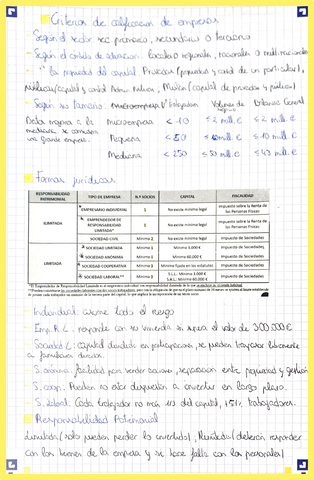 Criterios de clasificación de empresas
- Según el sector sec primario, secundario o terciario
- Según el ámbito de actuación locales o regionales, nacionales o multinacionales
- " la propiedad del capital Privadas (propiedad y capital de un particular),
Públicas (capital y control Admin. Pública), Mixtas (capital de privados y público)
- Según su tamaño Microempresa Nº trabajadores Volumen de Balance General
Datos mayores a la microempresa < 10 ≤ 2 mill. € ≤ 2 mill. €
mediana, se considera Pequeña < 50 ≤ 10 mill. € ≤ 10 mill. €
una grande empresa. Mediana < 250 ≤ 50 mill € ≤ 43 mill. €
Formas jurídicas
RESPONSABILIDAD PATRIMONIAL TIPO DE EMPRESA N.º SOCIOS CAPITAL FISCALIDAD
ILIMITADA EMPRESARIO INDIVIDUAL 1 No existe mínimo legal Impuesto sobre la Renta de las Personas Físicas
EMPRENDEDOR DE RESPONSABILIDAD LIMITADA* 1 No existe mínimo legal Impuesto sobre la Renta de las Personas Físicas
SOCIEDAD CIVIL Mínimo 2 No existe mínimo legal Impuesto de Sociedades
LIMITADA SOCIEDAD LIMITADA Mínimo 1 Mínimo 3.000 € Impuesto de Sociedades
SOCIEDAD ANÓNIMA Mínimo 1 Mínimo 60.000 € Impuesto de Sociedades
SOCIEDAD COOPERATIVA Mínimo 3 Mínimo fijado en los estatutos Impuesto de Sociedades
SOCIEDAD LABORAL** Mínimo 2 S.L.L.: Mínimo 3.000 € S.A.L.: Mínimo 60.000 € Impuesto de Sociedades
Individual: asume todo el riesgo
Emp. R. L. responde con su vivienda si supera el valor de 300.000 €
Sociedad L. capital dividido en participaciones, se pueden traspasar libremente
a familiares directos.
S. anónima: facilidad para vender acciones, separación entre propiedad y gestión
S. coop.: Pueden no estar dispuestos a invertir en largo plazo.
S. laboral: Cada trabajador no más 1/3 del capital, trabajadores.
Responsabilidad Patrimonial
Limitada (solo pueden perder lo invertido), Ilimitada (deberán responder
con los bienes de la empresa y si hace falta con los personales)